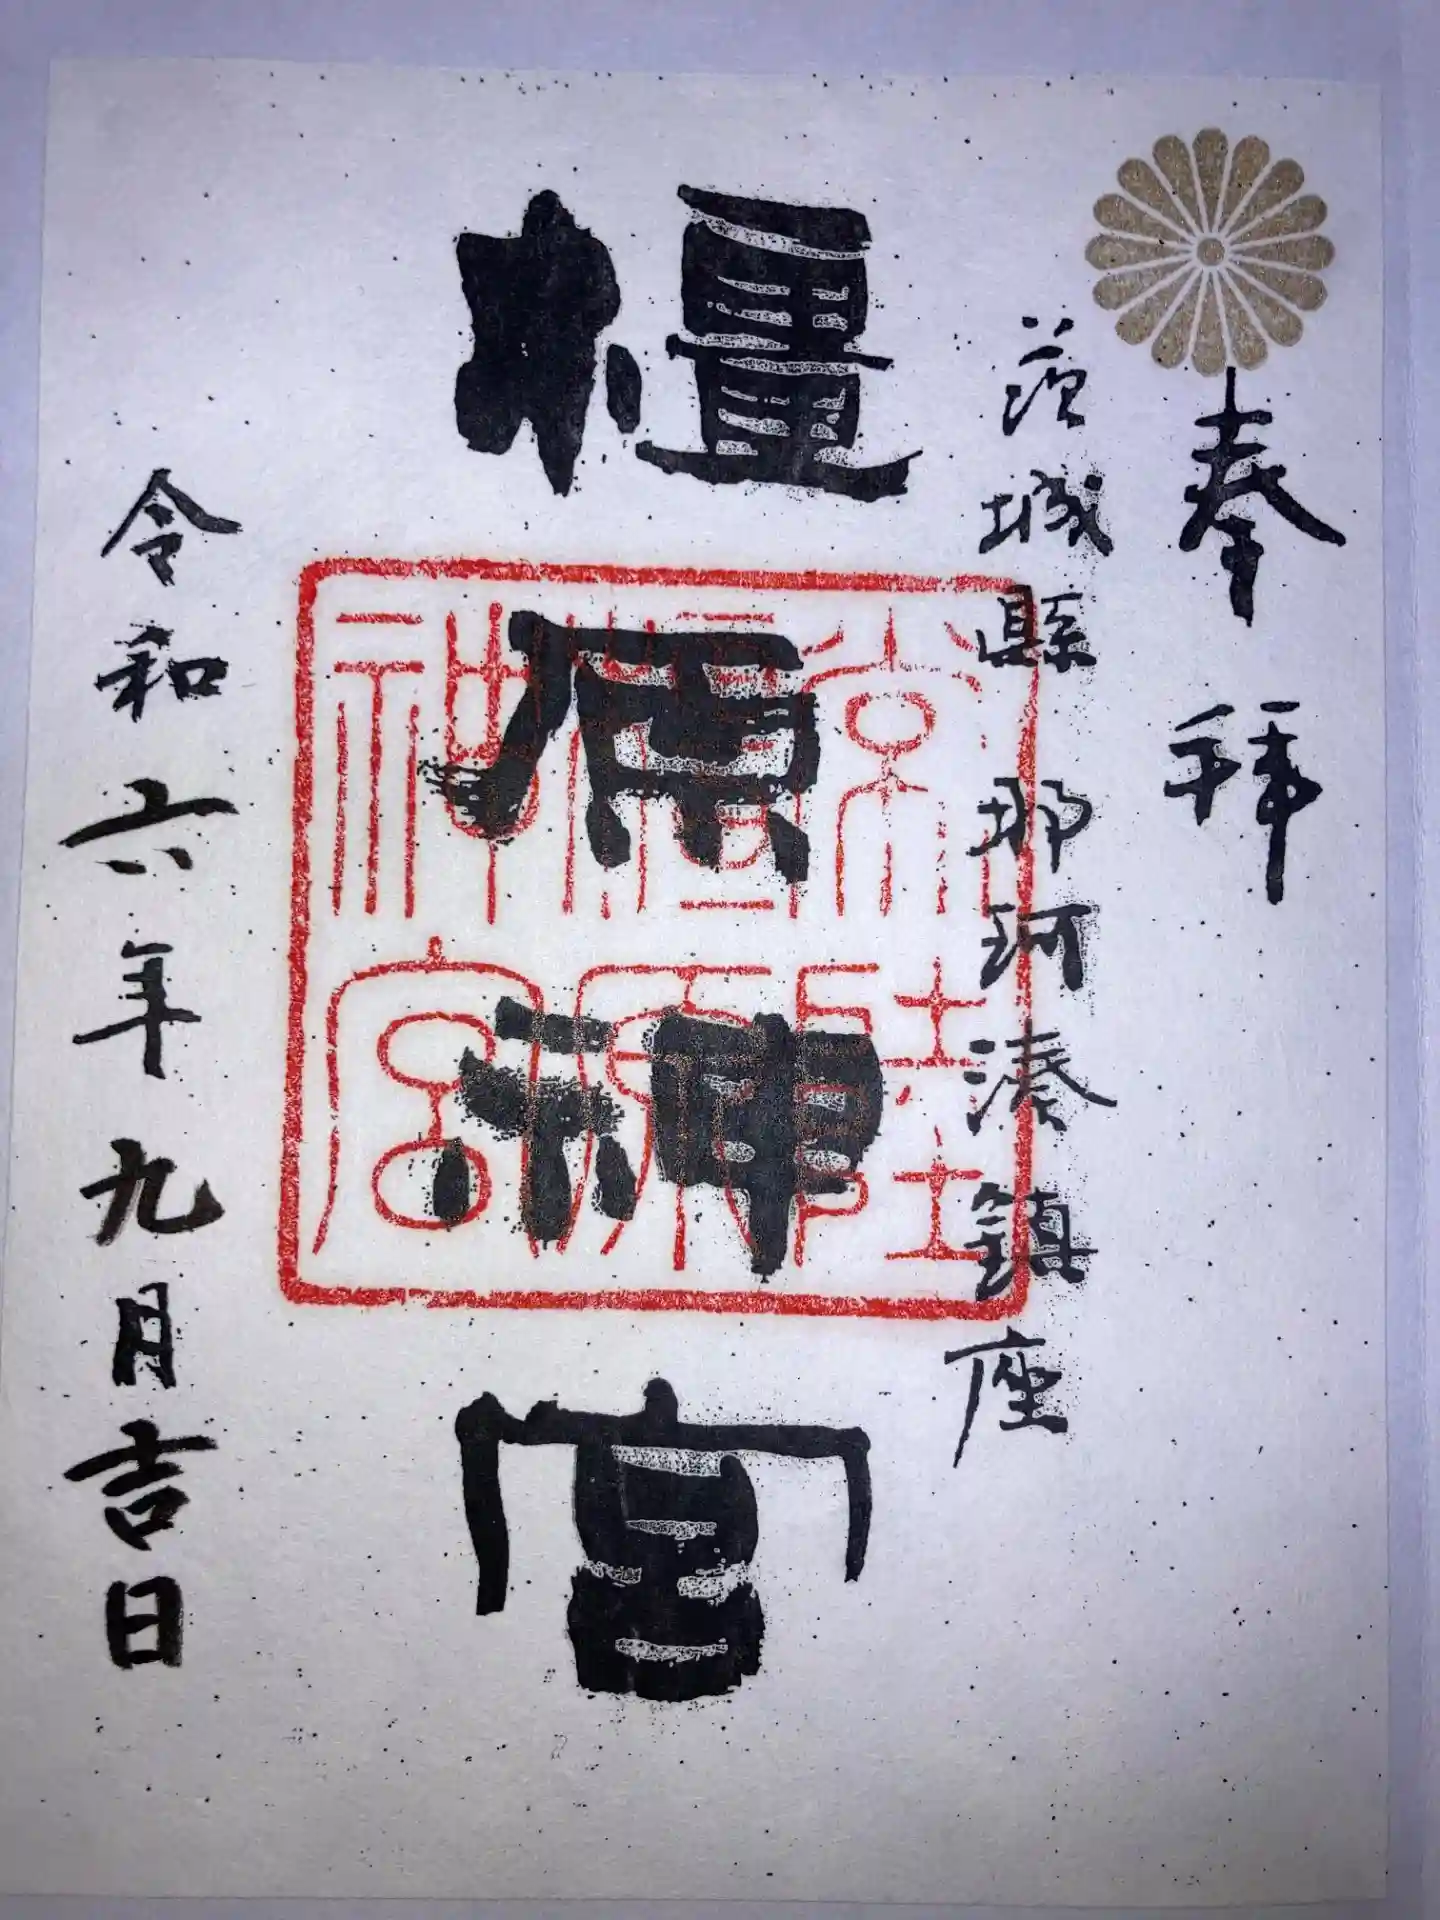 奉拝
茨城縣那珂湊鎮座
橿原神宮
常陸
橿原
神宮
令和六年九月吉日